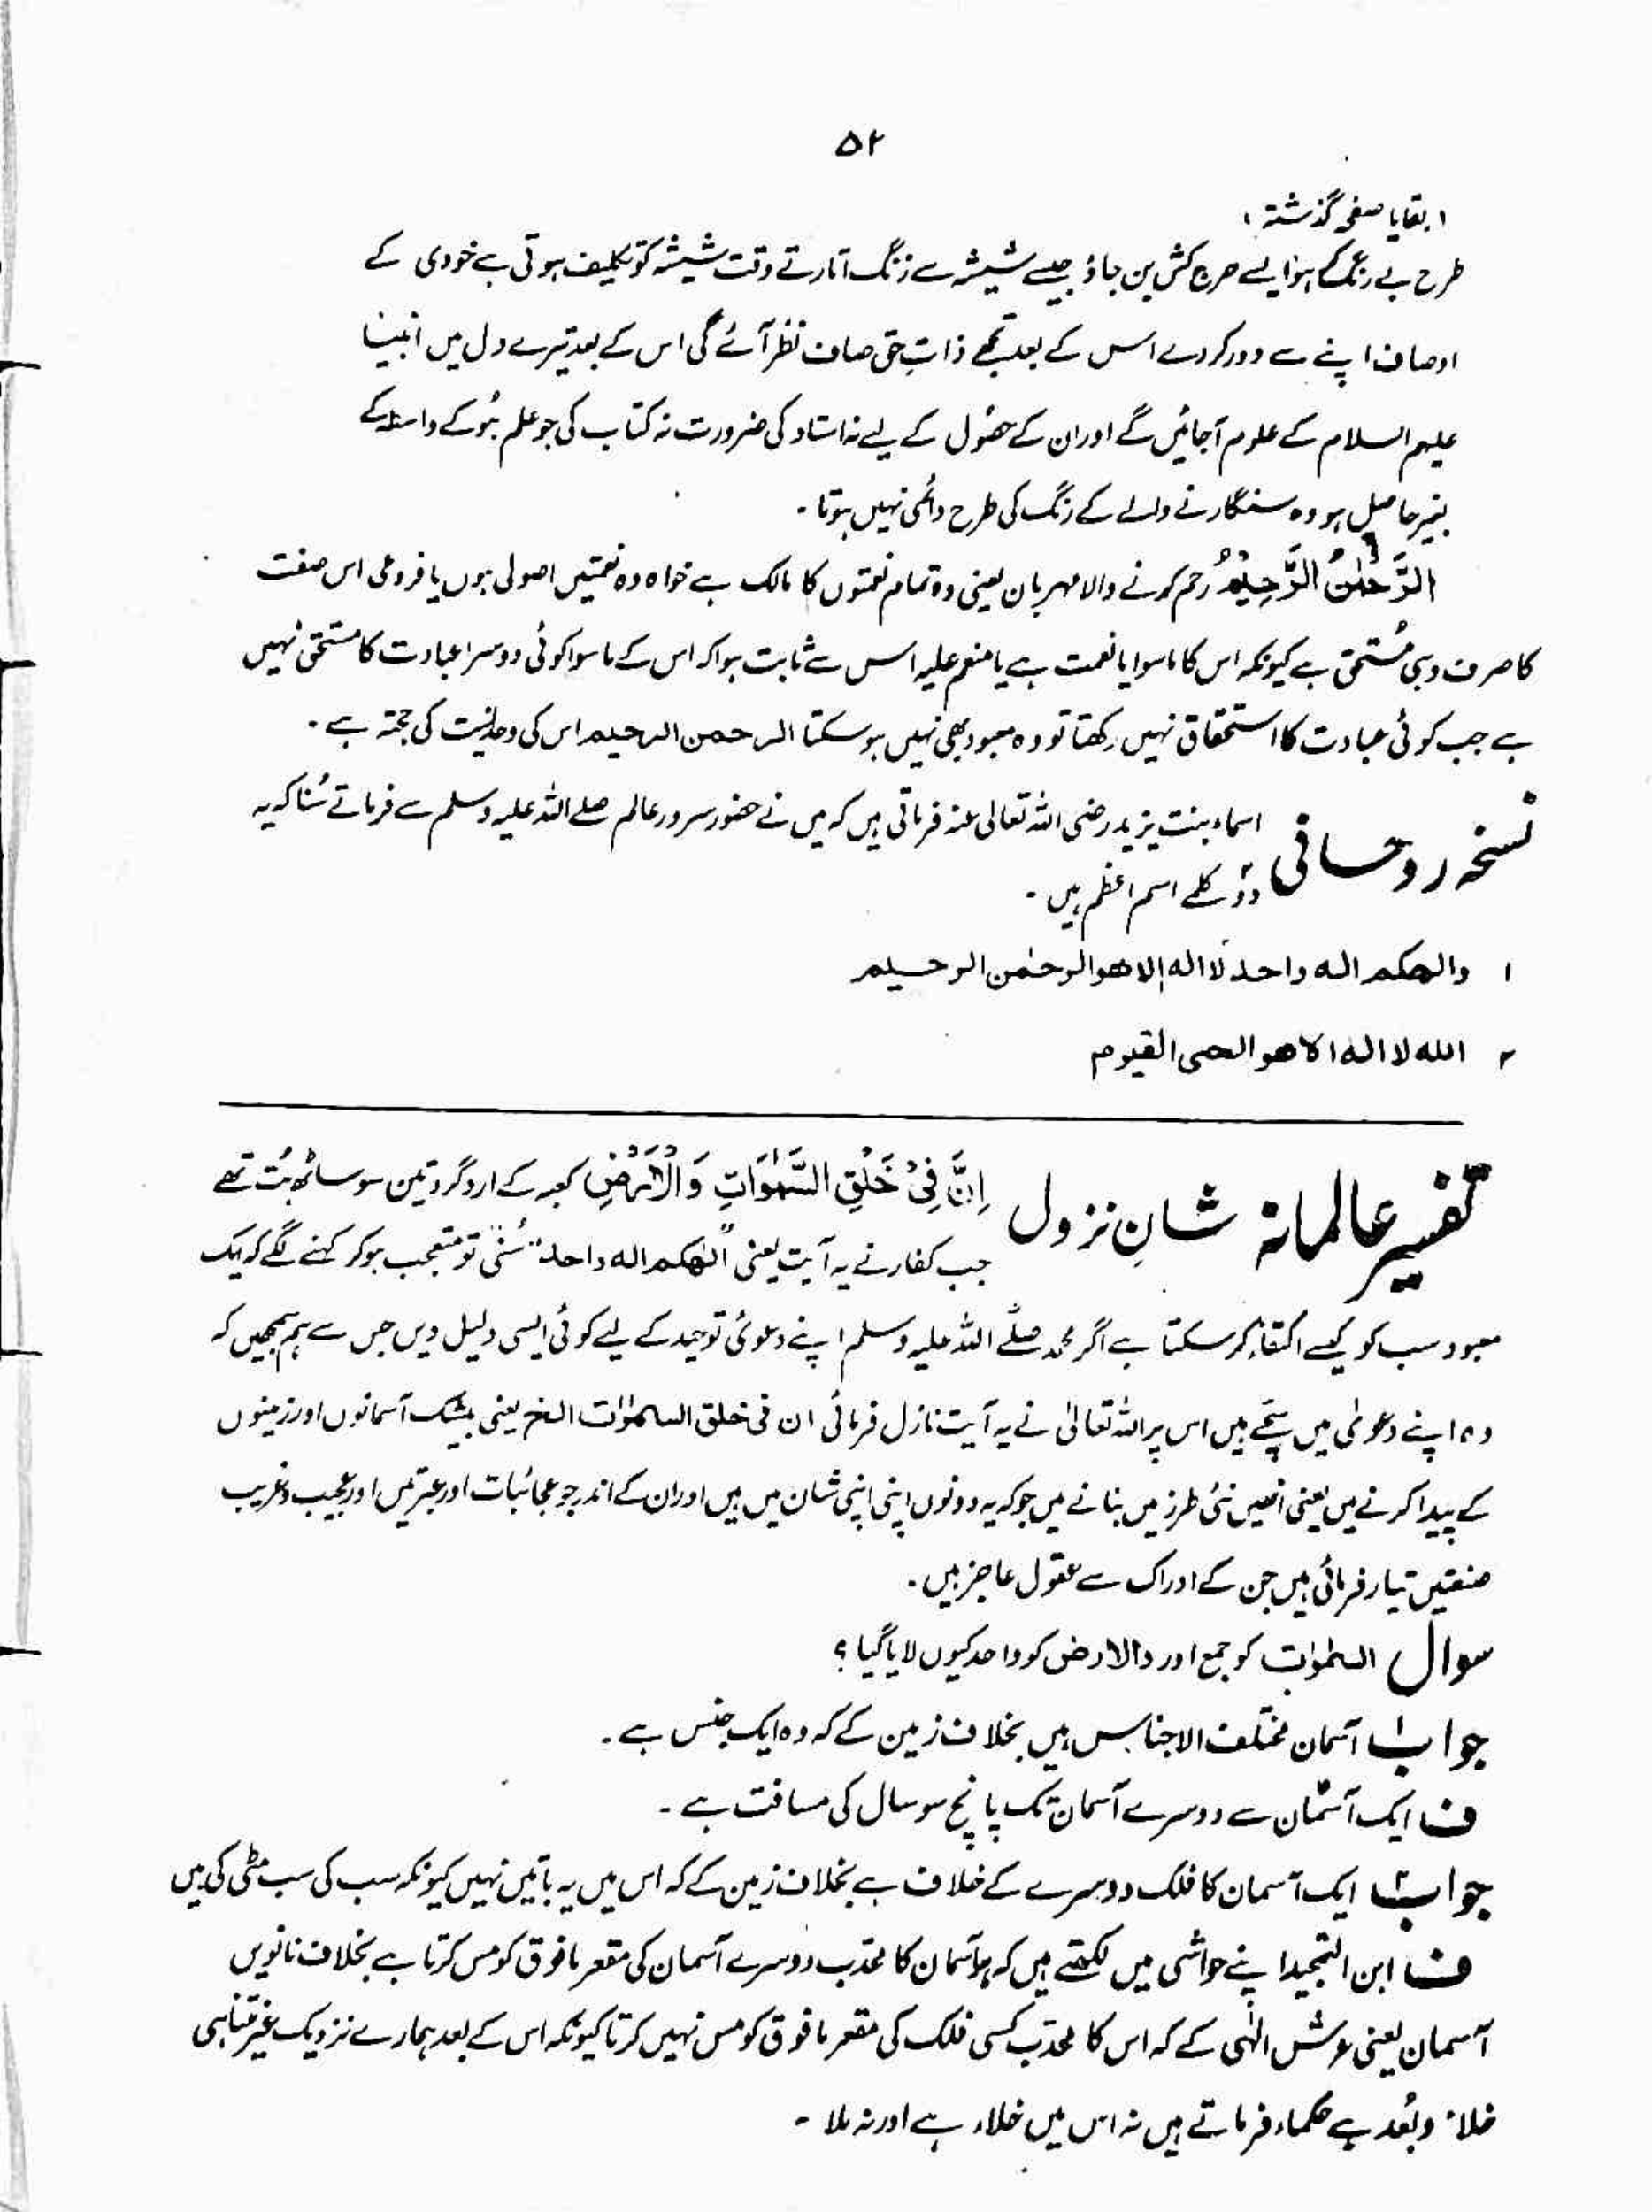 ۵۲
(بقایا صفحہ گذشتہ)
طرح بے رنگ کے ہو ایسے حرج کش بن جاؤ جیسے شیشہ سے زنگ اتارتے وقت شیشہ کو تکلیف ہوتی ہے خودی کے
اوصاف اپنے سے دور کر دے اس کے بعد تجھے ذاتِ حق صاف نظر آئے گی اس کے بعد تیرے دل میں انبیا
علیہم السلام کے علوم آجائیں گے اور ان کے حصُول کے لیے نہ استاد کی ضرورت نہ کتاب کی جو علم ہُو کے واسطہ کے
بغیر حاصل ہو وہ سنگارنے والے کے رنگ کی طرح دائمی نہیں ہوتا۔
الرَّحْمٰنُ الرَّحِیْمُ رحم کرنے والا مہربان یعنی وہ تمام نعمتوں کا مالک ہے خواہ وہ نعمتیں اصولی ہوں یا فروعی اس صفت
کا صرف وہی مُستحق ہے کیونکہ اس کا ماسوا یا نعمت ہے یا منعم علیہ اس سے ثابت ہوا کہ اس کے ماسوا کوئی دوسرا عبادت کا مستحق نہیں
ہے جب کوئی عبادت کا استحقاق نہیں رکھتا تو وہ معبود بھی نہیں ہو سکتا الرحمن الرحیم اس کی وحدانیت کی حجۃ ہے۔
نسخہ روحانی اسماء بنت یزید رضی اللہ تعالیٰ عنہ فرماتی ہیں کہ میں نے حضور سرور عالم صلے اللہ علیہ وسلم سے فرماتے سُنا کہ یہ
دو کلمے اسم اعظم ہیں۔
۱ والھکم الہ واحد لا الہ الا ھو الرحمٰن الرحیم
۲ اللہ لا الہ الا ھو الحی القیوم
تفسیر عالمانہ شانِ نزول اِنَّ فِیْ خَلْقِ السَّمٰوٰاتِ وَالْاَرْضِ کعبہ کے اردگرد تین سو ساٹھ بُت تھے
جب کفار نے یہ آیت یعنی "الٰھکم الہ واحد" سُنی تو متعجب ہو کر کہنے لگے کہ ایک
معبود سب کو کیسے اکتفاء کر سکتا ہے اگر محمد صلے اللہ علیہ وسلم اپنے دعوئ توحید کے لیے کوئی ایسی دلیل دیں جس سے ہم سمجھیں کہ
وہ اپنے دعوٰی میں سچّے ہیں اس پر اللہ تعالیٰ نے یہ آیت نازل فرمائی ان فی خلق السمٰوٰت الخ یعنی بیشک آسمانوں اور زمینوں
کے پیدا کرنے میں یعنی انھیں نئی طرز میں بنانے میں جو کہ یہ دونوں اپنی اپنی شان میں ہیں اور ان کے اندر جو عجائبات اور عبرتیں اور عجیب و غریب
صنعتیں تیار فرمائی ہیں جن کے ادراک سے عقول عاجز ہیں۔
سوال السمٰوٰت کو جمع اور والارض کو واحد کیوں لایا گیا؟
جواب ۱ آسمان مختلف الاجناس ہیں بخلاف زمین کے کہ وہ ایک جنس ہے۔
ف ایک آسمان سے دوسرے آسمان تک پانچ سو سال کی مسافت ہے۔
جواب ۲ ایک آسمان کا فلک دوسرے کے خلاف ہے بخلاف زمین کے کہ اس میں یہ باتیں نہیں کیونکہ سب کی سب مٹی کی ہیں
ف ابن التمجید اپنے حواشی میں لکھتے ہیں کہ ہر آسمان کا محدّب دوسرے آسمان کی مقعر مافوق کو مس کرتا ہے بخلاف نانویں
آسمان یعنی عرش الٰہی کے کہ اس کا محدّب کسی فلک کی مقعر مافوق کو مس نہیں کرتا کیونکہ اس کے بعد ہمارے نزدیک غیر متناہی
خلاء وبُعد ہے حکماء فرماتے ہیں نہ اس میں خلاء ہے اور نہ ملا۔